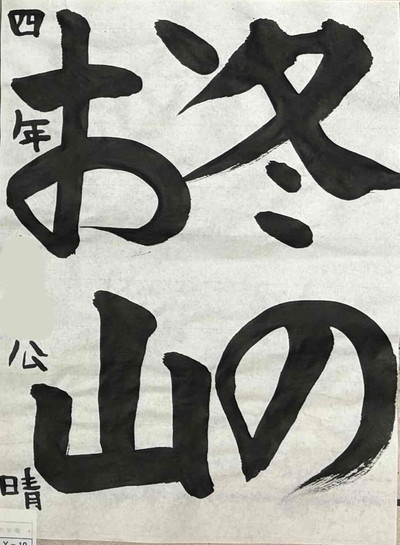 冬の
お山
四年 公晴